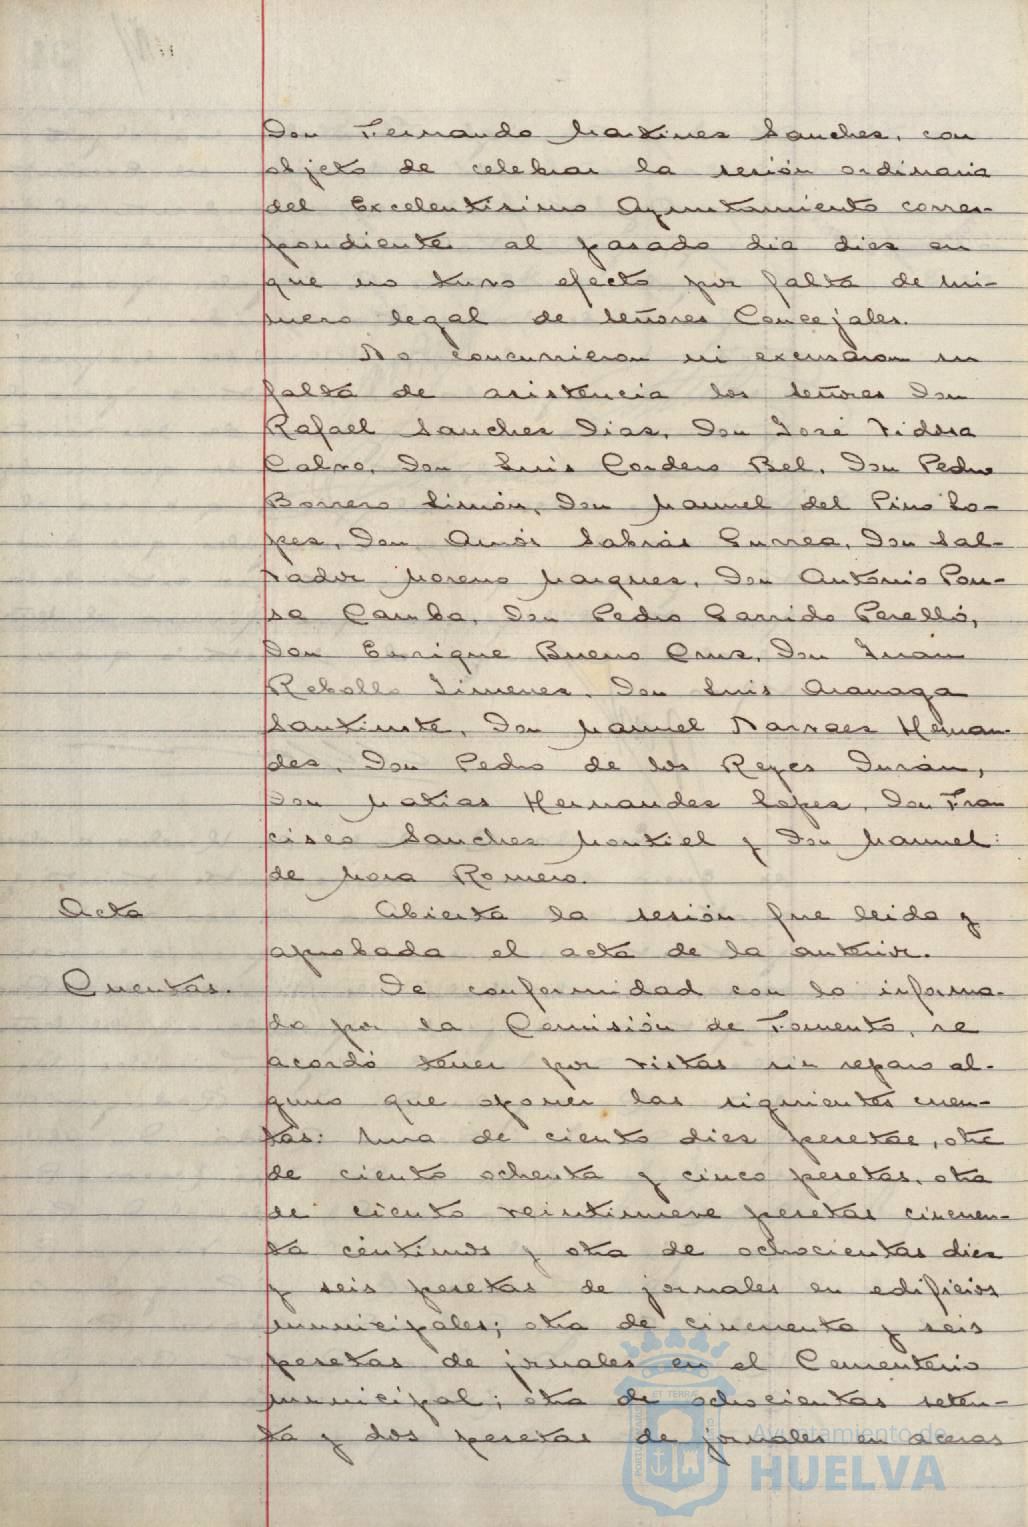 Don Fernando Martinez Sanchez, con
objeto de celebrar la sesión ordinaria
del Excelentísimo Ayuntamiento corres-
pondiente al pasado dia diez en
que no tuvo efecto por falta de nú-
mero legal de señores Concejales.
No concurrieron ni excusaron su
falta de asistencia los señores Don
Rafael Sanchez Diaz, Don José Vidosa
Calvo, Don Luis Cordero Bel, Don Pedro
Borrero Limón, Don Manuel del Pino Lo-
pez, Don Amós Sabrás Gurrea, Don Sal-
vador Moreno Marquez, Don Antonio Pou-
sa Camba, Don Pedro Garrido Perelló,
Don Enrique Bueno Cruz, Don Juan
Rebollo Jimenez, Don Luis Aranaga
Santinste, Don Manuel Narvaez Hernan-
dez, Don Pedro de los Reyes Durán,
Don Matias Hernandez Lopez, Don Fran
cisco Sanchez Montiel y Don Manuel
de Mora Romero.
Acta Abierta la sesión fue leida y
aprobada el acta de la anterior.
Cuentas. De conformidad con lo informa-
do por la Comisión de Fomento, se
acordó tener por vistas sin reparo al-
guno que oponer las siguientes cuen-
tas: Una de ciento diez pesetas, otra
de ciento ochenta y cinco pesetas, otra
de ciento veintinueve pesetas cincuen-
ta céntimos y otra de ochocientas diez
y seis pesetas de jornales en edificios
municipales; otra de cincuenta y seis
pesetas de jornales en el Cementerio
municipal; otra de ochocientas seten-
ta y dos pesetas de jornales en aceras
Ayuntamiento de
HUELVA